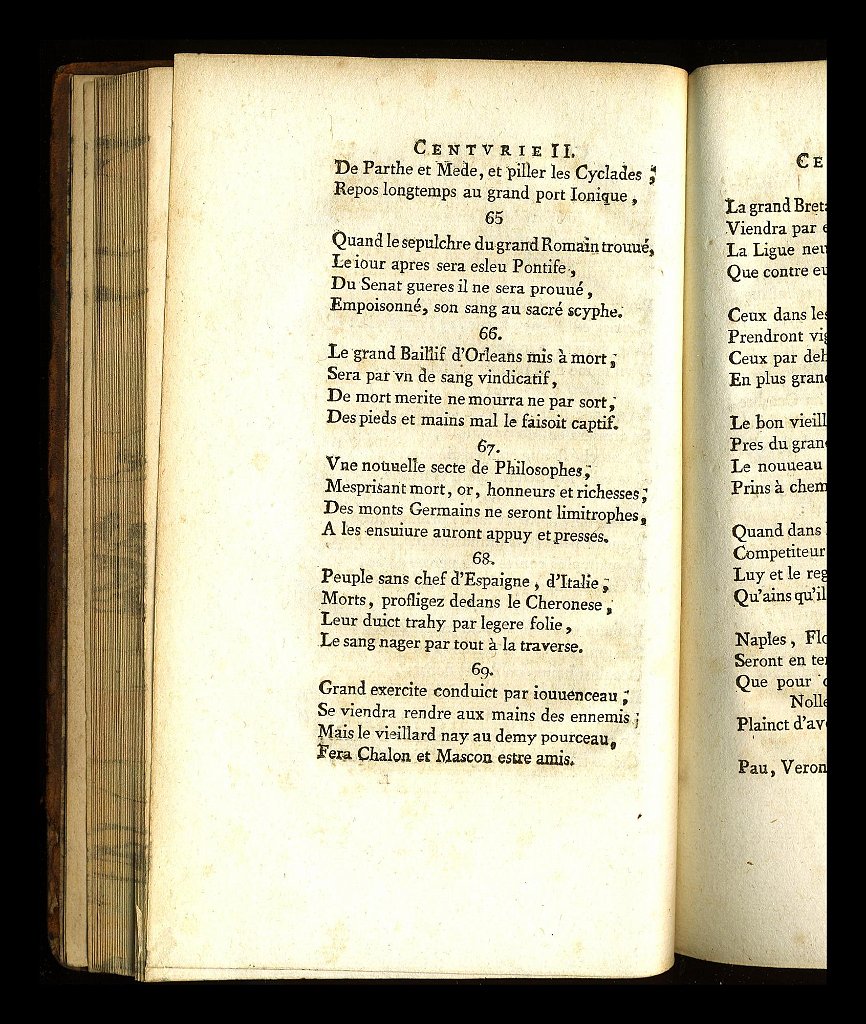 CENTVRIE II.
De Parthe et Mede, et piller les Cyclades ;
Repos longtemps au grand port Ionique ,
65
Quand le sepulchre du grand Romain trouué,
Le iour apres sera esleu Pontife ,
Du Senat gueres il ne sera prouué ,
Empoisonné, son sang au sacré scyphe.
66.
Le grand Baillif d'Orleans mis à mort ;
Sera par vn de sang vindicatif ,
De mort merite ne mourra ne par sort ;
Des pieds et mains mal le faisoit captif.
67.
Vne nouuelle secte de Philosophes ;
Mesprisant mort, or, honneurs et richesses ;
Des monts Germains ne seront limitrophes ,
A les ensuiure auront appuy et presses.
68.
Peuple sans chef d'Espaigne , d'Italie ;
Morts, profligez dedans le Cheronese ,
Leur duict trahy par legere folie ,
Le sang nager par tout à la traverse.
69.
Grand exercite conduict par iouuenceau ;
Se viendra rendre aux mains des ennemis ;
Mais le vieillard nay au demy pourceau ,
Fera Chalon et Mascon estre amis.
CE
La grand Breta
Viendra par e
La Ligue neu
Que contre eu
Ceux dans les
Prendront vig
Ceux par deh
En plus grand
Le bon vieill
Pres du gran
Le nouueau
Prins à chem
Quand dans
Competiteur
Luy et le reg
Qu'ains qu'il
Naples , Flo
Seront en te
Que pour
Nolle
Plainct d'av
Pau, Veron